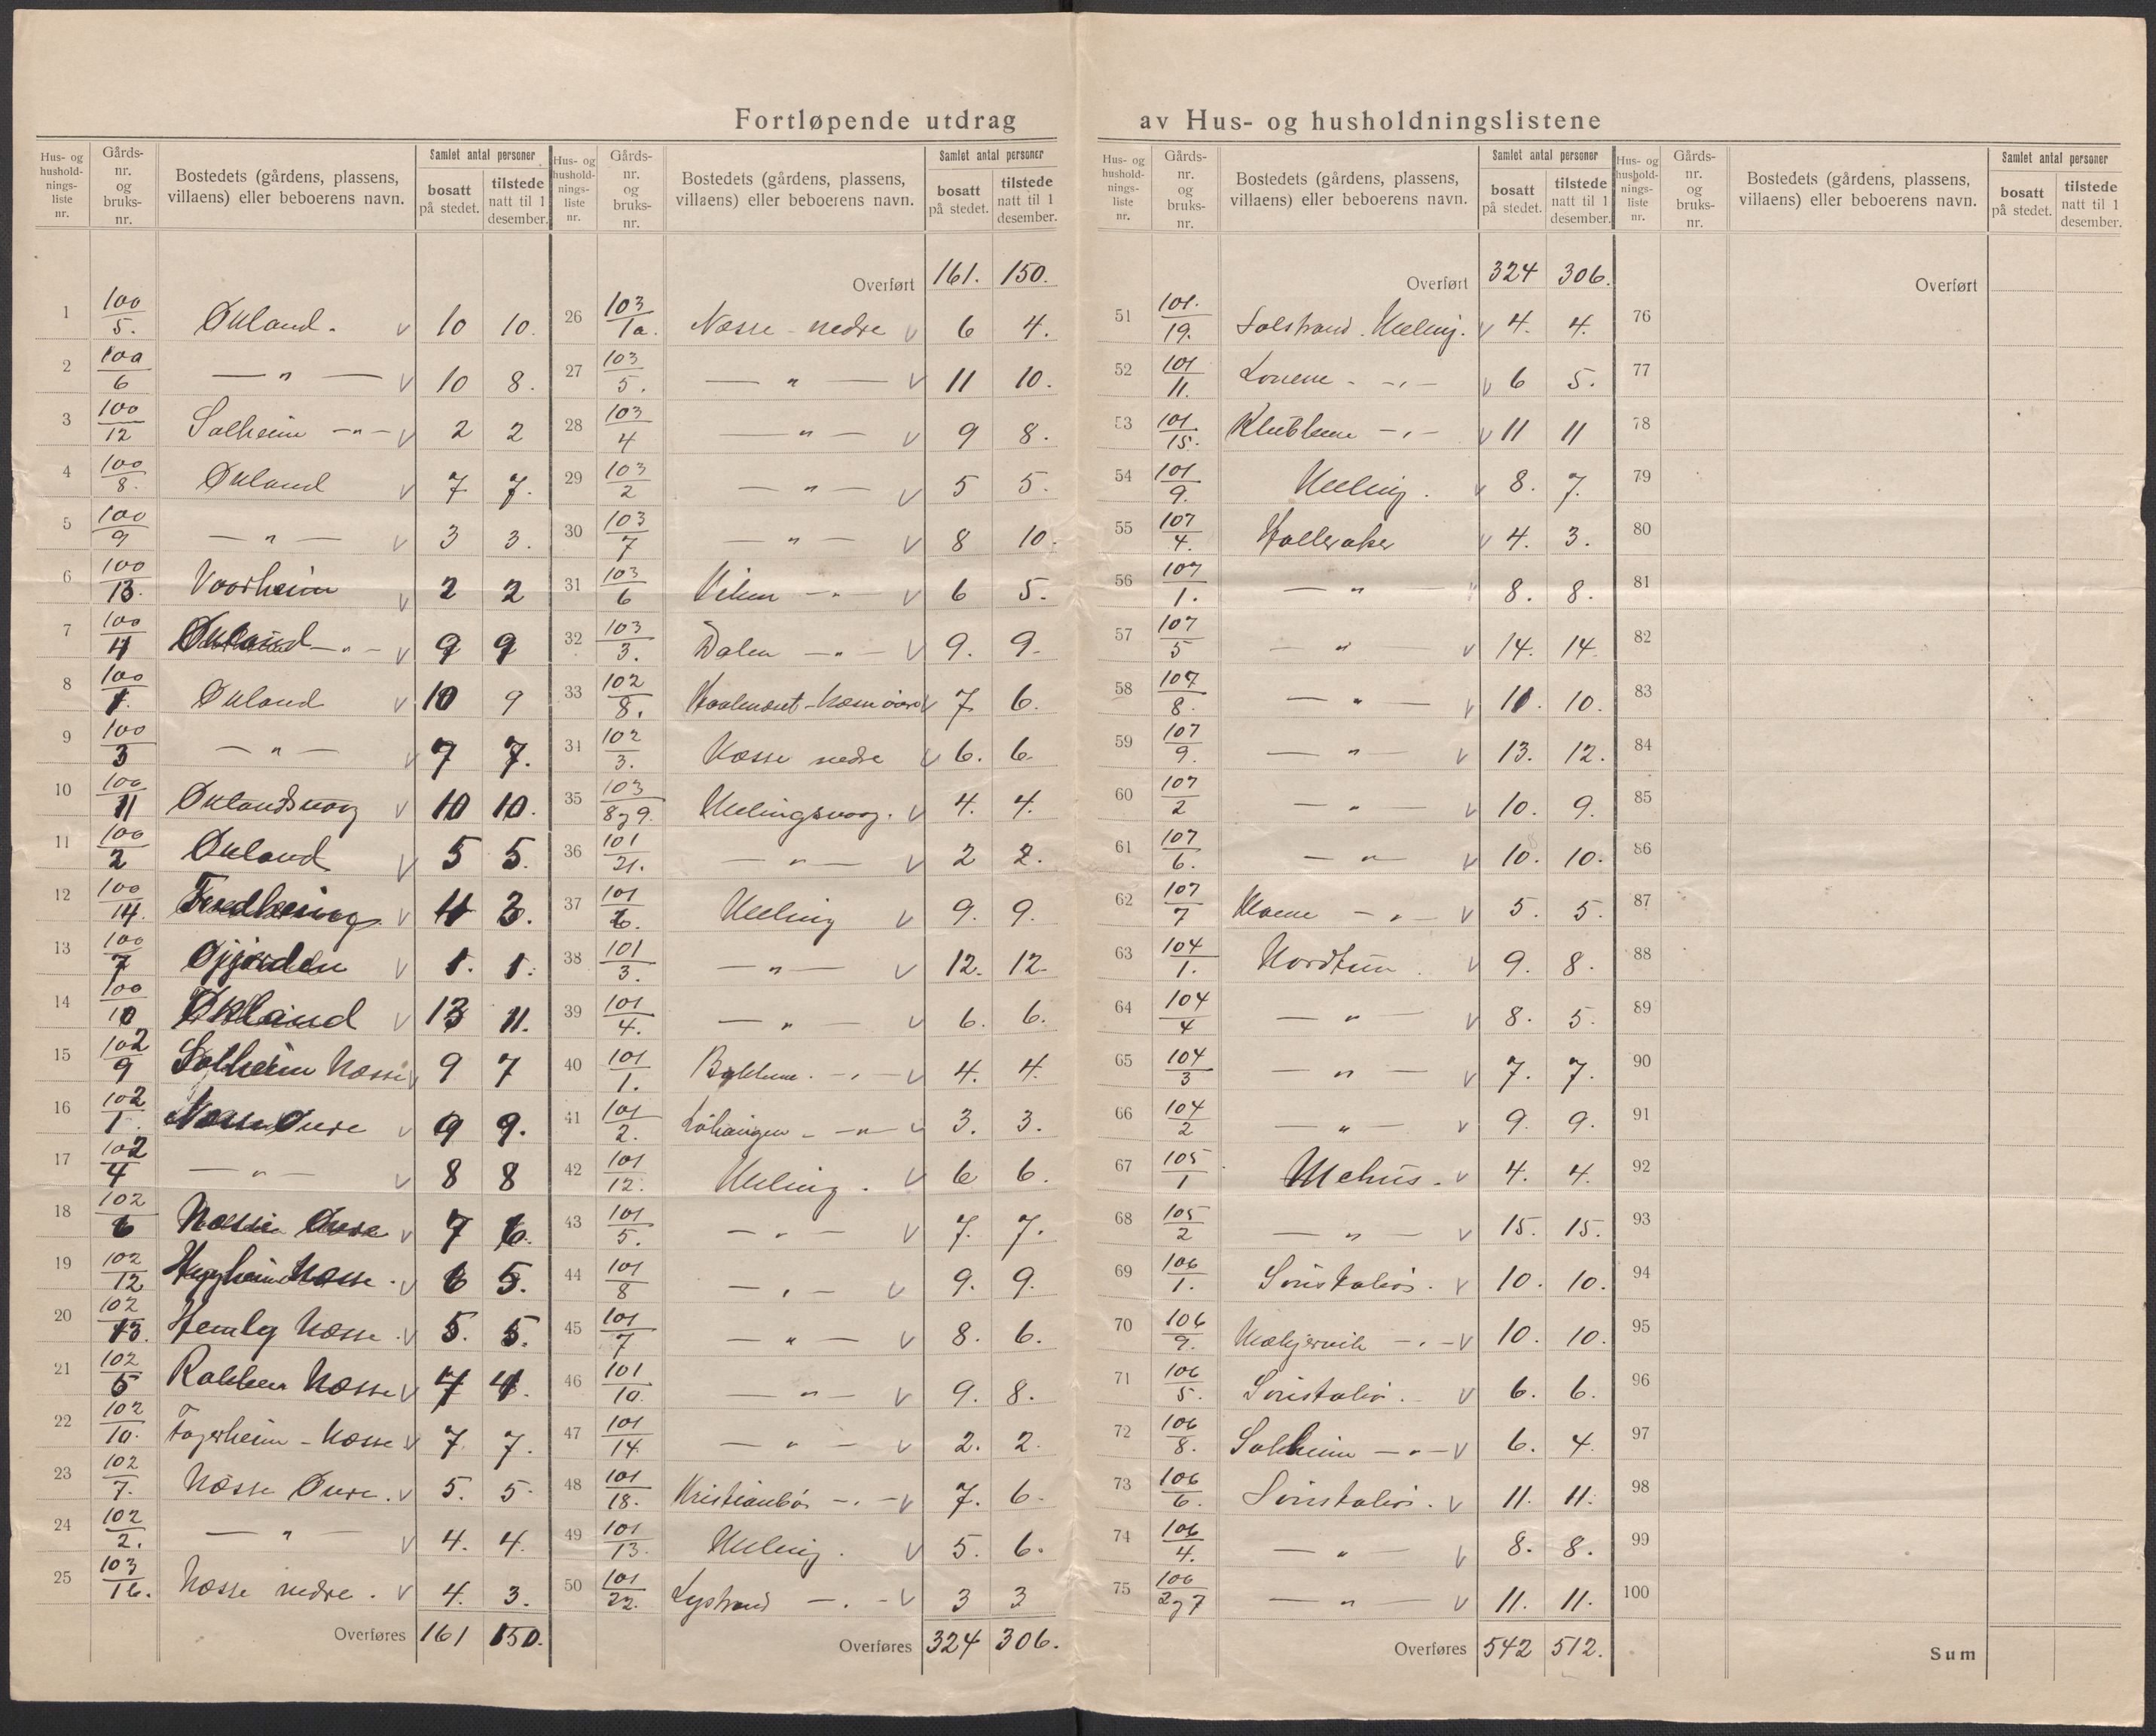 Fortløpende utdrag av Hus- og husholdningslistene
Hus- og hushold-nings-liste nr. | Gårds-nr. og bruks-nr. | Bostedets (gårdens, plassens, villaens) eller beboerens navn. | Samlet antal personer | bosatt på stedet. | tilstede natt til 1 desember.
1 100/5. Økland. v 10 10.
2 100/6 — " — v 10 8.
3 100/12 Solheim —"— v 2 2
4 100/8. Økland v 7 7.
5 100/9 — " — v 3 3.
6 100/13. Voorheim v 2 2
7 100/4 Økland —"— v 9 9
8 100/1. Økland v 10 9
9 100/3 — " — v 7 7.
10 100/11 Øklandsvaag v 10 10.
11 100/2 Økland v 5 5.
12 100/14. v 4 3.
13 100/7 Gjjerden v 1. 1.
14 100/10 Økland v 13 11.
15 102/9 Solheim Næsse v 9 7
16 102/1. Næsse Øvre v 9 9.
17 102/4 — " — v 8 8
18 102/6 Næsse Øvre v 7 6.
19 102/12 Næsse. v 6 5.
20 102/13. Næsse v 5. 5.
21 102/5 Rakken Næsse v 7 4.
22 102/10. Fagerheim - Næsse v 7. 7.
23 102/7. Næsse Øvre. v 5. 5.
24 102/2. — " — v 4. 4.
25 103/1b. Næsse nedre. v 4. 3.
Overføres 161 150.
Hus- og hushold-nings-liste nr. | Gårds-nr. og bruks-nr. | Bostedets (gårdens, plassens, villaens) eller beboerens navn. | Samlet antal personer | bosatt på stedet. | tilstede natt til 1 desember.
Overført 161. 150.
26 103/1a. Næsse - nedre v 6 4.
27 103/5. — " — v 11 10.
28 103/4 — " — v 9 8.
29 103/2 — " — v 5 5.
30 103/7 — " — v 8 10.
31 103/6 Viken —"— v 6 5.
32 103/3. Dalen —"— v 9. 9.
33 102/8. v 7 6.
34 102/3. Næsse nedre v 6. 6.
35 103/8 og 9. Mælingsvaag. v 4. 4.
36 101/21. — " — v 2 2.
37 101/6. Mæling v 9. 9.
38 101/3. — " — v 12. 12.
39 101/4. — " — v 6. 6.
40 101/1. Bakkene. —"— v 4. 4.
41 101/2. —"— v 3. 3.
42 101/12. Mæling. v 6 6.
43 101/5. — " — v 7. 7.
44 101/8 — " — v 9. 9.
45 101/7 — " — v 8. 6.
46 101/10. — " — v 9. 8.
47 101/14. — " — v 2. 2.
48 101/18. Kristianbø —"— v 7. 6.
49 101/13. Mæling. v 5. 6.
50 101/22. Lystrand —"— v 3 3
Overføres 324 306.
Hus- og hushold-nings-liste nr. | Gårds-nr. og bruks-nr. | Bostedets (gårdens, plassens, villaens) eller beboerens navn. | Samlet antal personer | bosatt på stedet. | tilstede natt til 1 desember.
Overført 324 306.
51 101./19. Solstrand. Mæling. v 4. 4.
52 101/11. —"— v 6 5.
53 101/15. —"— v 11 11
54 101/9. Mæling. v 8. 7.
55 107/4. Halleraker v 4. 3.
56 107/1. — " — 8. 8.
57 107/5 — " — v 14. 14.
58 107/8. — " — v 11. 10.
59 107/9. — " — v 13. 12.
60 107/2 — " — v 10. 9.
61 107/6. — " — v 10. 10.
62 107/7 —"— v 5. 5.
63 104/1. Nordtun v 9. 8.
64 104/4 — " — v 8. 5.
65 104/3 — " — v 7. 7.
66 104/2 — " — v 9. 9.
67 105/1 Mehus. v 4. 4.
68 105/2 — " — v 15. 15.
69 106/1. Sønstabø. v 10. 10.
70 106/9. —"— v 10. 10.
71 106/5. Sønstabø. v 6. 6.
72 106/8. Solheim —"— v 6. 4.
73 106/6. Sønstabø. v 11. 11.
74 106/4. — " — v 8. 8.
75 106/2 og 7 — " — v 11. 11.
Overføres 542 512.
Hus- og hushold-nings-liste nr. | Gårds-nr. og bruks-nr. | Bostedets (gårdens, plassens, villaens) eller beboerens navn. | Samlet antal personer | bosatt på stedet. | tilstede natt til 1 desember.
Overført
76
77
78
79
80
81
82
83
84
85
86
87
88
89
90
91
92
93
94
95
96
97
98
99
100
Sum